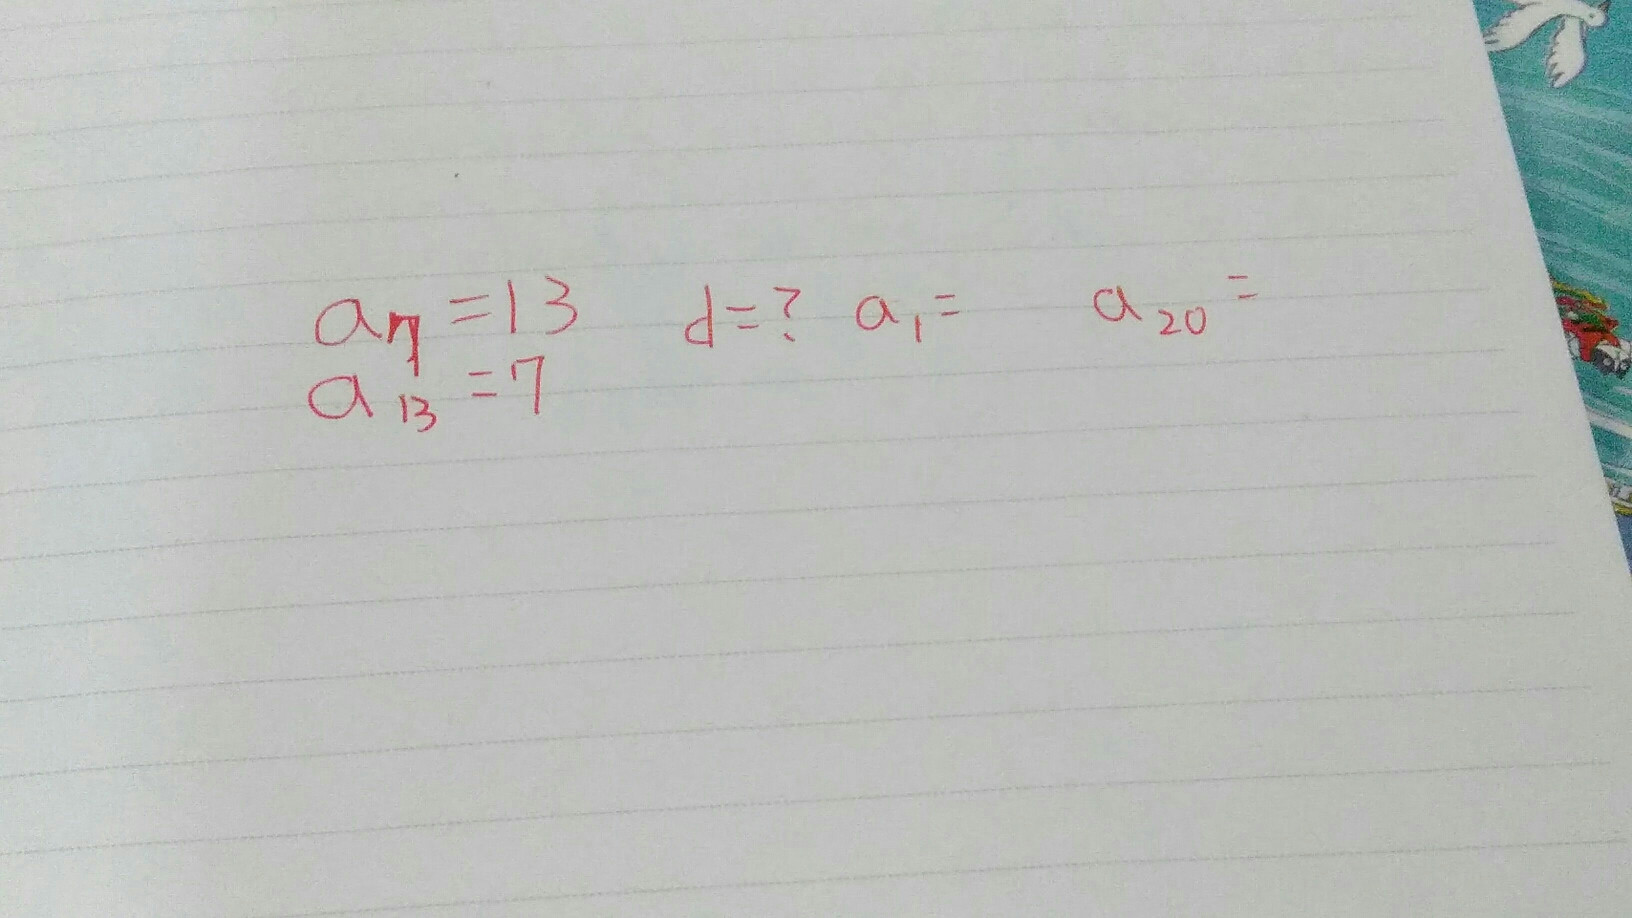 a₇ = 13 d = ? a₁ = a₂₀ =
a₁₃ = 7